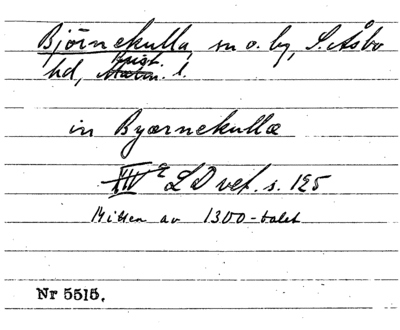 Björnekulla, sn o. by, S. Åsbo
hd, Krist. l.
in Byærnekullæ
LD vet. s. 125
Mitten av 1300-talet
Nr 5515.